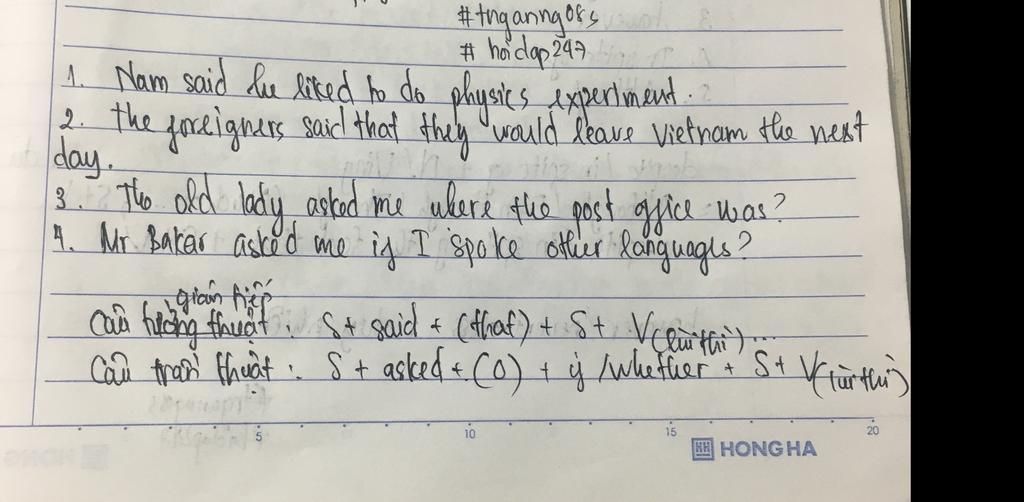 #tnganng08s
# hoidap247
1. Nam said he liked to do physics experiment.
2. the foreigners said that they would leave Vietnam the next
day.
3. The old lady asked me where the post office was?
4. Mr Bakar asked me if I spoke other languages?
gián tiếp
Câu tường thuật: S + said + (that) + S + V(lùi thì)...
Câu trần thuật: S + asked + (O) + if/whether + S + V(lùi thì)
5 10 15 20
HH HONG HA